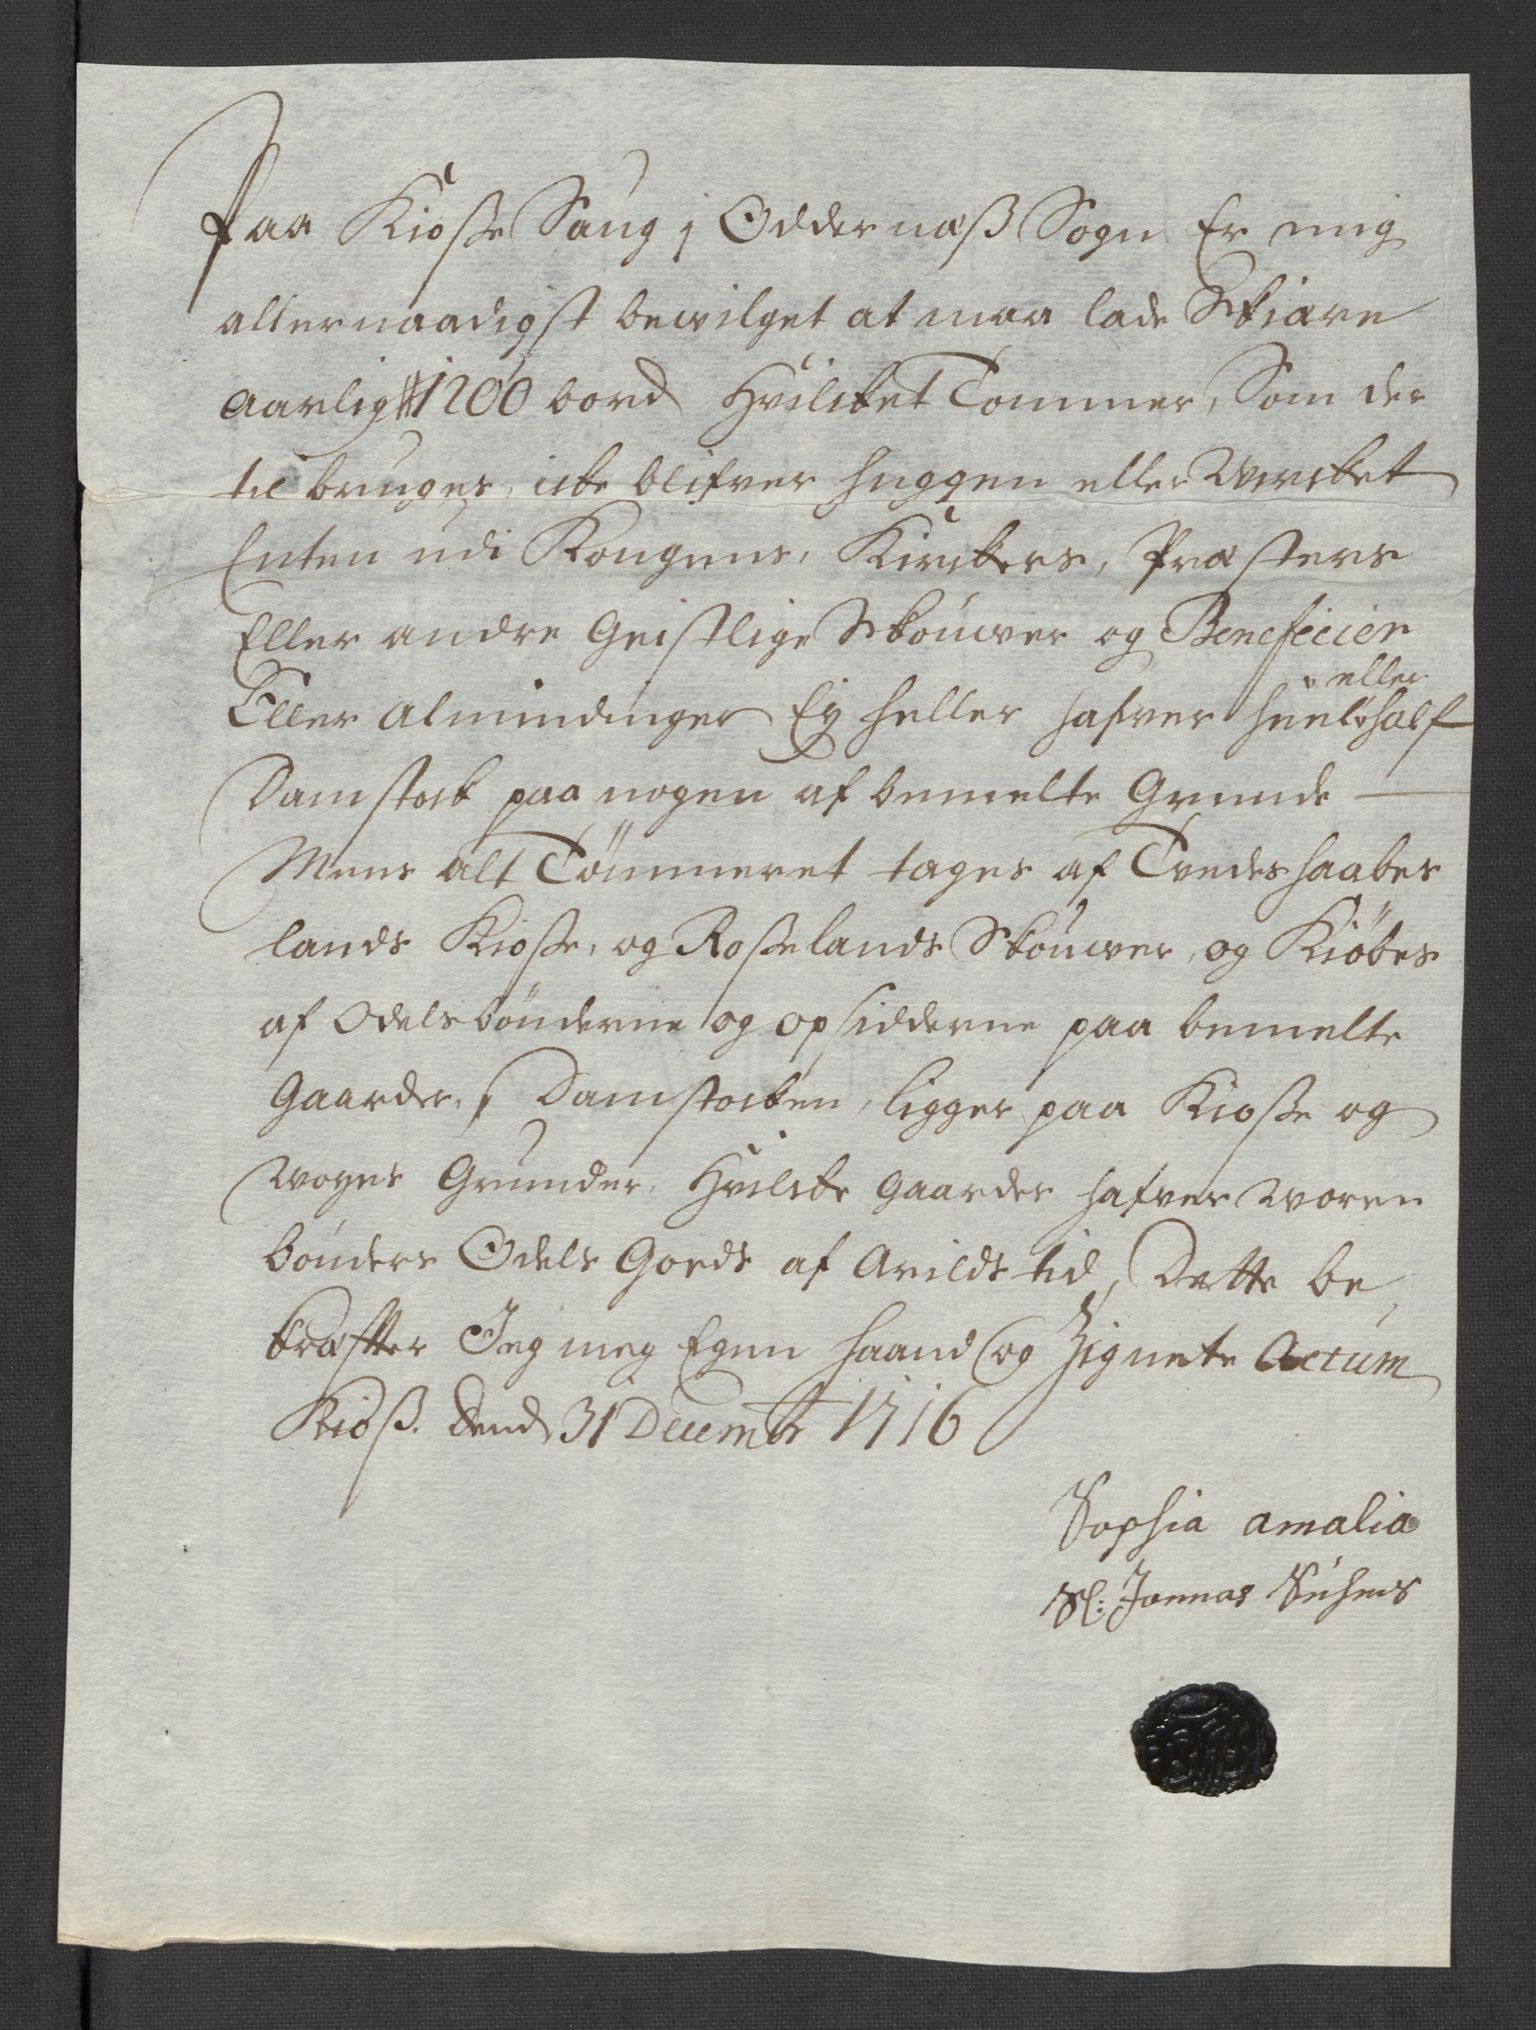 Paa Kiosse Saug j Oddernæss Sogn Er mig
allernaadigst bevilget at maa lade Skiære
aarlig 1200 bord Hvilcket Tømmer, Som der
til bruges, icke blifver huggen eller Virchet
Enten udi Kongens, Kirckers, Præsters
Eller andre Geistlige Skouver og Beneficier
Eller Almindinger Ey heller hafver heel eller half
Damstock paa nogen af bemelte Grunde
Mens alt Tömmeret tages af Tvedes haabes
lands Kiosse, og Rosselands Skouver, og Kiöbes
af Odelsbönderne og opsidderne paa bemelte
Gaarder, Damstocken, ligger paa Kiosse og
Woyes Grunder, Hvilcke Gaarder hafver Woren
bönders Odels Gods af Arilds tid, Dette be
kræffter Jeg meg Egen haand og Zignete Actum
Kioß. Dend 31 Decembr 1716
Sophia amalia
Sl: Jonnas Suhms